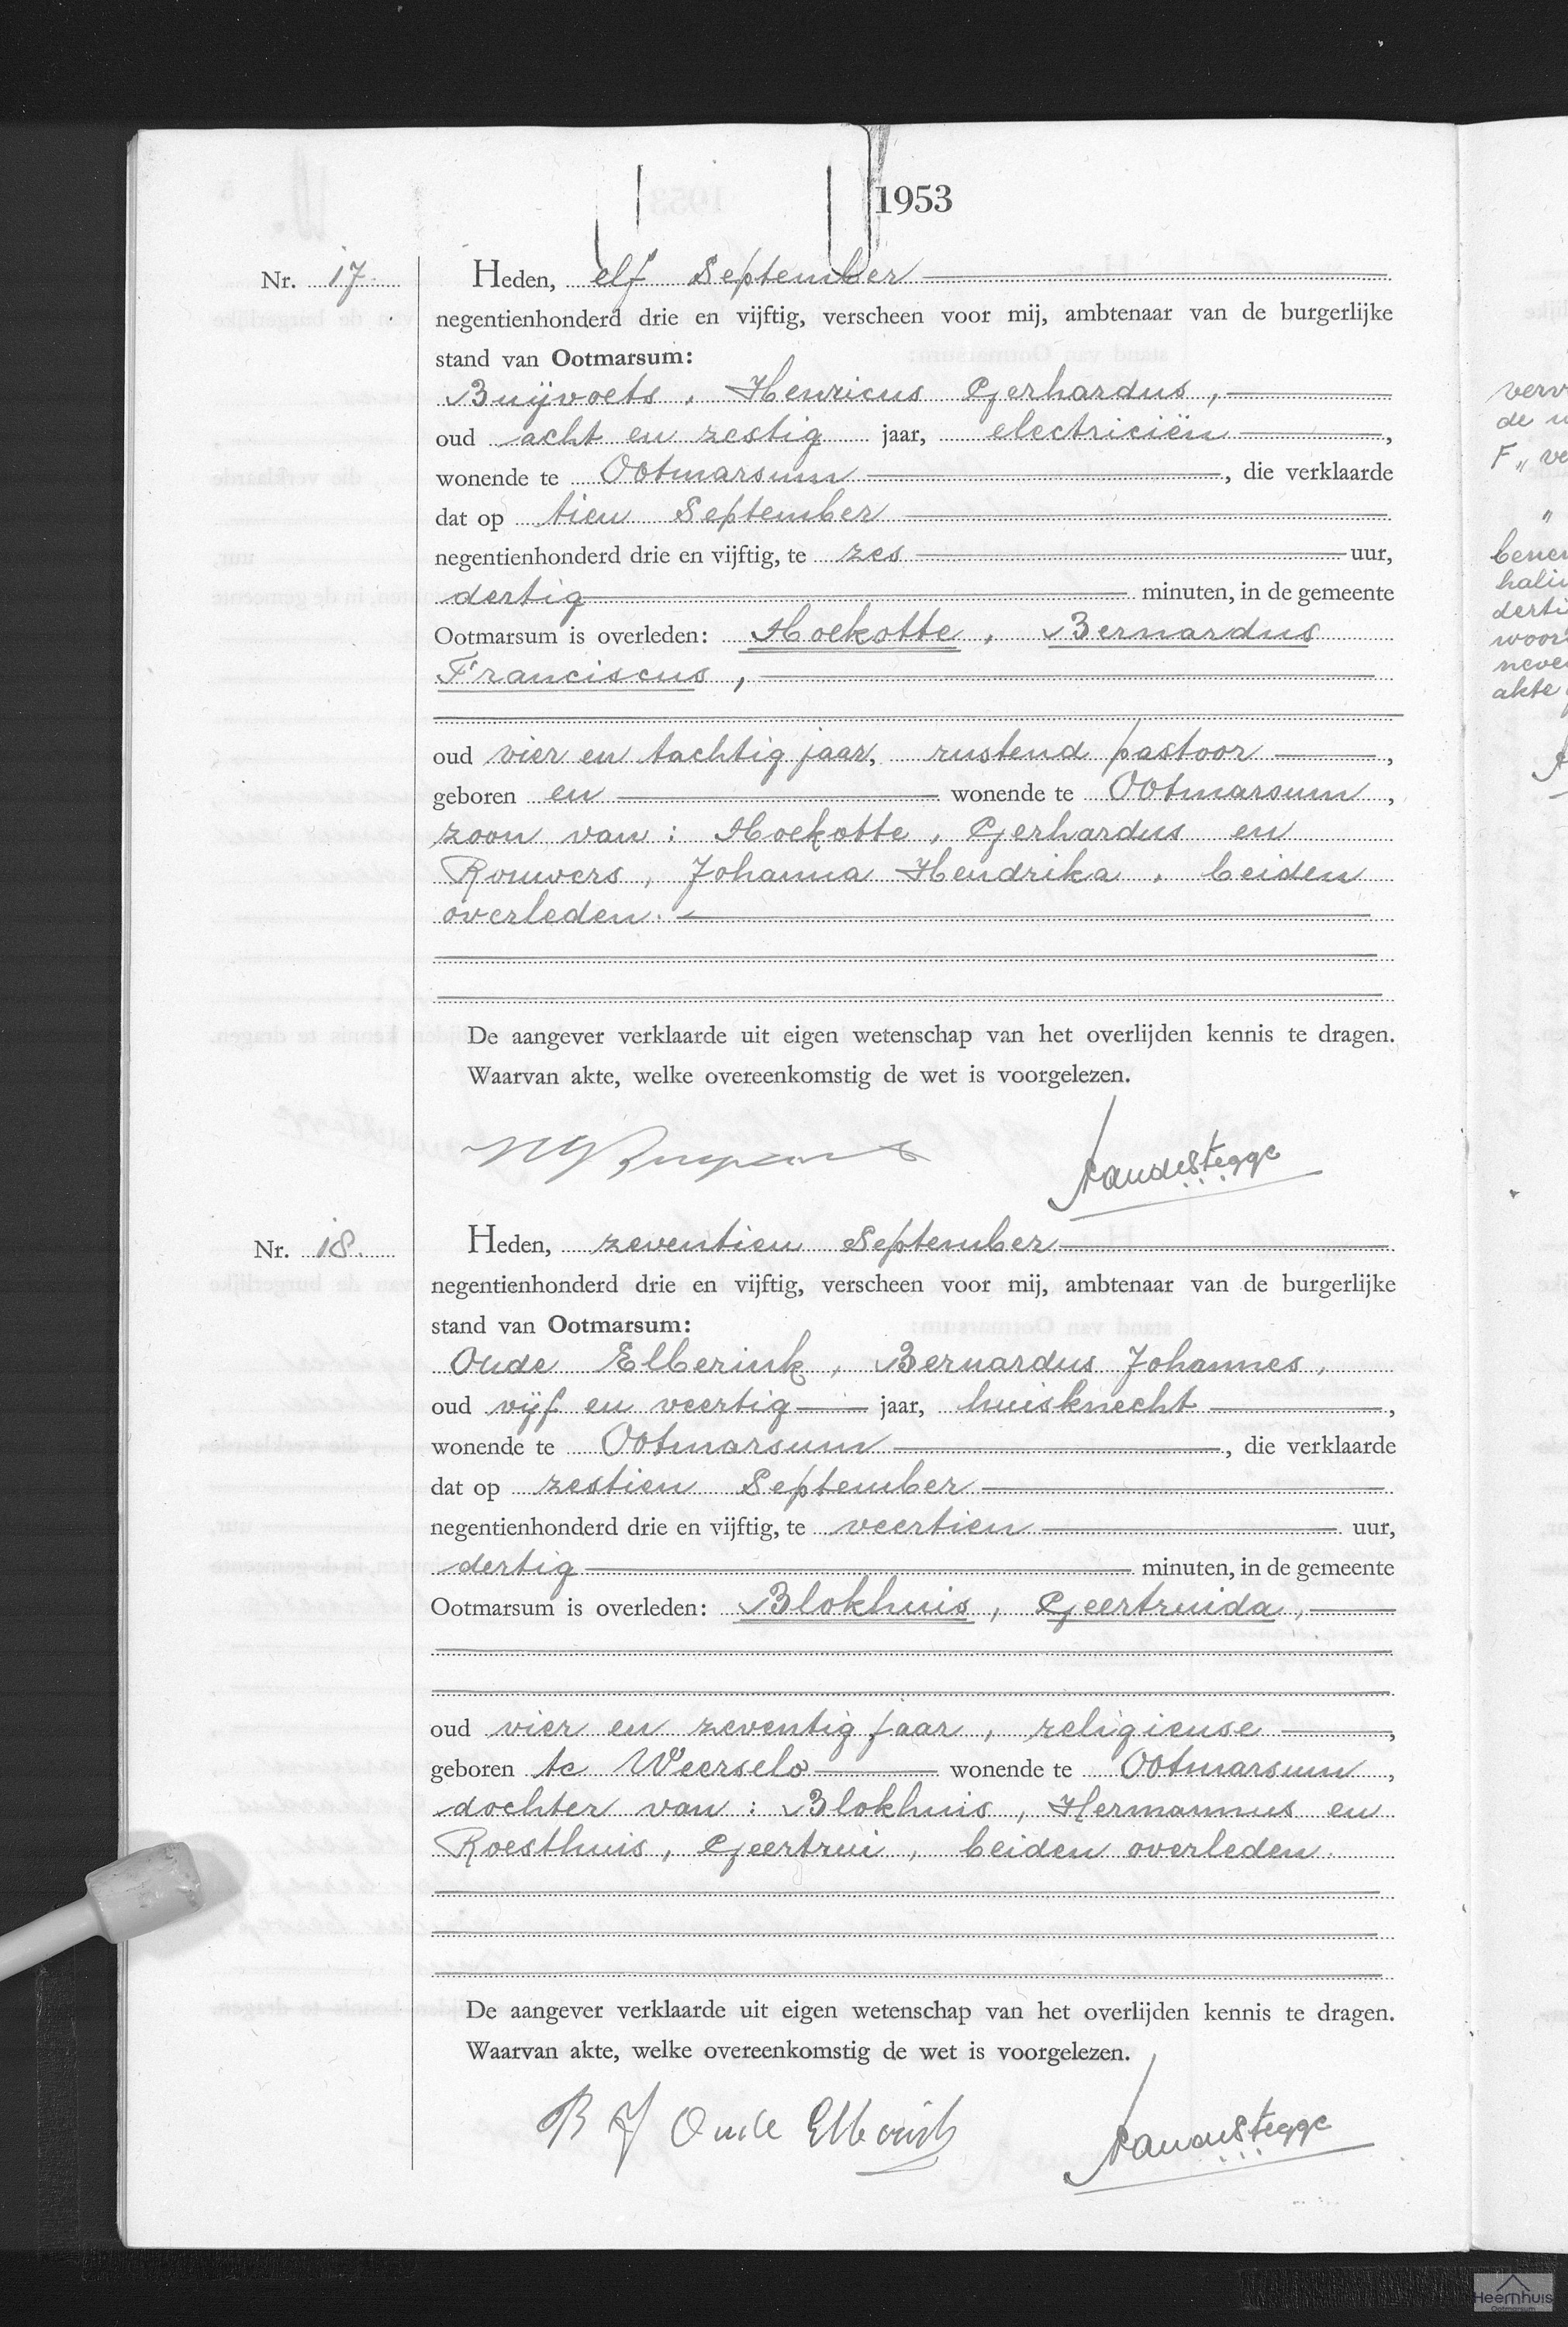 1953
Nr. 17. Heden, elf September
negentienhonderd drie en vijftig, verscheen voor mij, ambtenaar van de burgerlijke
stand van Ootmarsum:
Buijvoets, Henricus Gerhardus,
oud acht en zestig jaar, electriciën,
wonende te Ootmarsum, die verklaarde
dat op tien September
negentienhonderd drie en vijftig, te zes uur,
dertig minuten, in de gemeente
Ootmarsum is overleden: Hoekotte, Bernardus
Franciscus,
oud vier en tachtig jaar, rustend pastoor,
geboren en wonende te Ootmarsum,
zoon van: Hoekotte, Gerhardus en
Rouwers, Johanna Hendrika, beiden
overleden.
De aangever verklaarde uit eigen wetenschap van het overlijden kennis te dragen.
Waarvan akte, welke overeenkomstig de wet is voorgelezen.
Nr. 18. Heden, zeventien September
negentienhonderd drie en vijftig, verscheen voor mij, ambtenaar van de burgerlijke
stand van Ootmarsum:
Oude Elberink, Bernardus Johannes,
oud vijf en veertig jaar, huisknecht,
wonende te Ootmarsum, die verklaarde
dat op zestien September
negentienhonderd drie en vijftig, te veertien uur,
dertig minuten, in de gemeente
Ootmarsum is overleden: Blokhuis, Geertruida,
oud vier en zeventig jaar, religieuse,
geboren te Weerselo wonende te Ootmarsum,
dochter van: Blokhuis, Hermannus en
Roesthuis, Geertrui, beiden overleden.
De aangever verklaarde uit eigen wetenschap van het overlijden kennis te dragen.
Waarvan akte, welke overeenkomstig de wet is voorgelezen.
B J Oude Elberink
Heemhuis
Ootmarsum